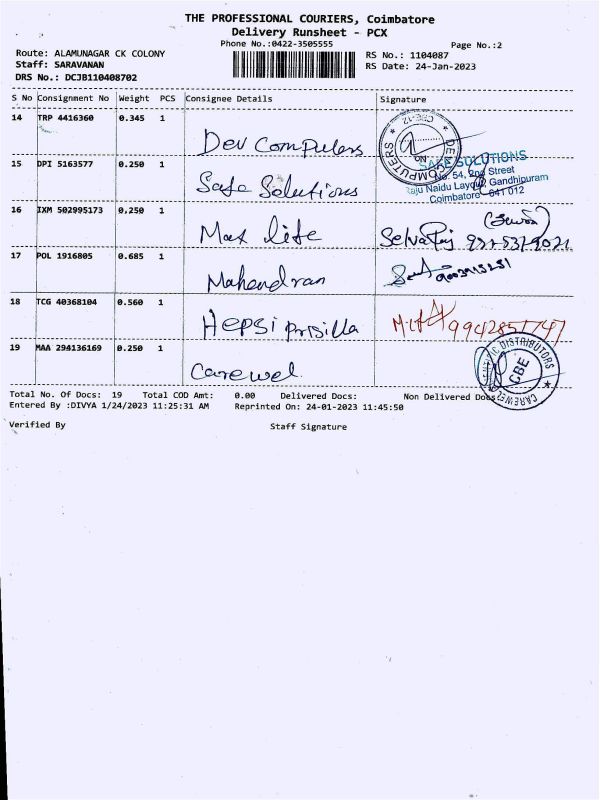 THE PROFESSIONAL COURIERS, Coimbatore
Delivery Runsheet - PCX
Phone No.:0422-3505555
Page No.:2
Route: ALAMUNAGAR CK COLONY
RS No.: 1104087
Staff: SARAVANAN
RS Date: 24-Jan-2023
DRS No.: DCJB110408702
S No Consignment No Weight PCS Consignee Details Signature
14 TRP 4416360 0.345 1
Dev Computers
DEV COMPUTERS CBE-12
15 DPI 5163577 0.250 1
Safe Solutions
SAFE SOLUTIONS
No. 54, 2nd Street
Raju Naidu Layout, Gandhipuram
Coimbatore - 641 012
16 IXM 502995173 0.250 1
Max lite
Selvaraj
17 POL 1916805 0.685 1
Mahendran
18 TCG 40368104 0.560 1
Hepsi Prisilla
19 MAA 294136169 0.250 1
Carewel
DISTRIBUTORS
CBE
CAREWEL
Total No. Of Docs: 19 Total COD Amt: 0.00 Delivered Docs: Non Delivered Docs:
Entered By :DIVYA 1/24/2023 11:25:31 AM Reprinted On: 24-01-2023 11:45:50
Verified By Staff Signature